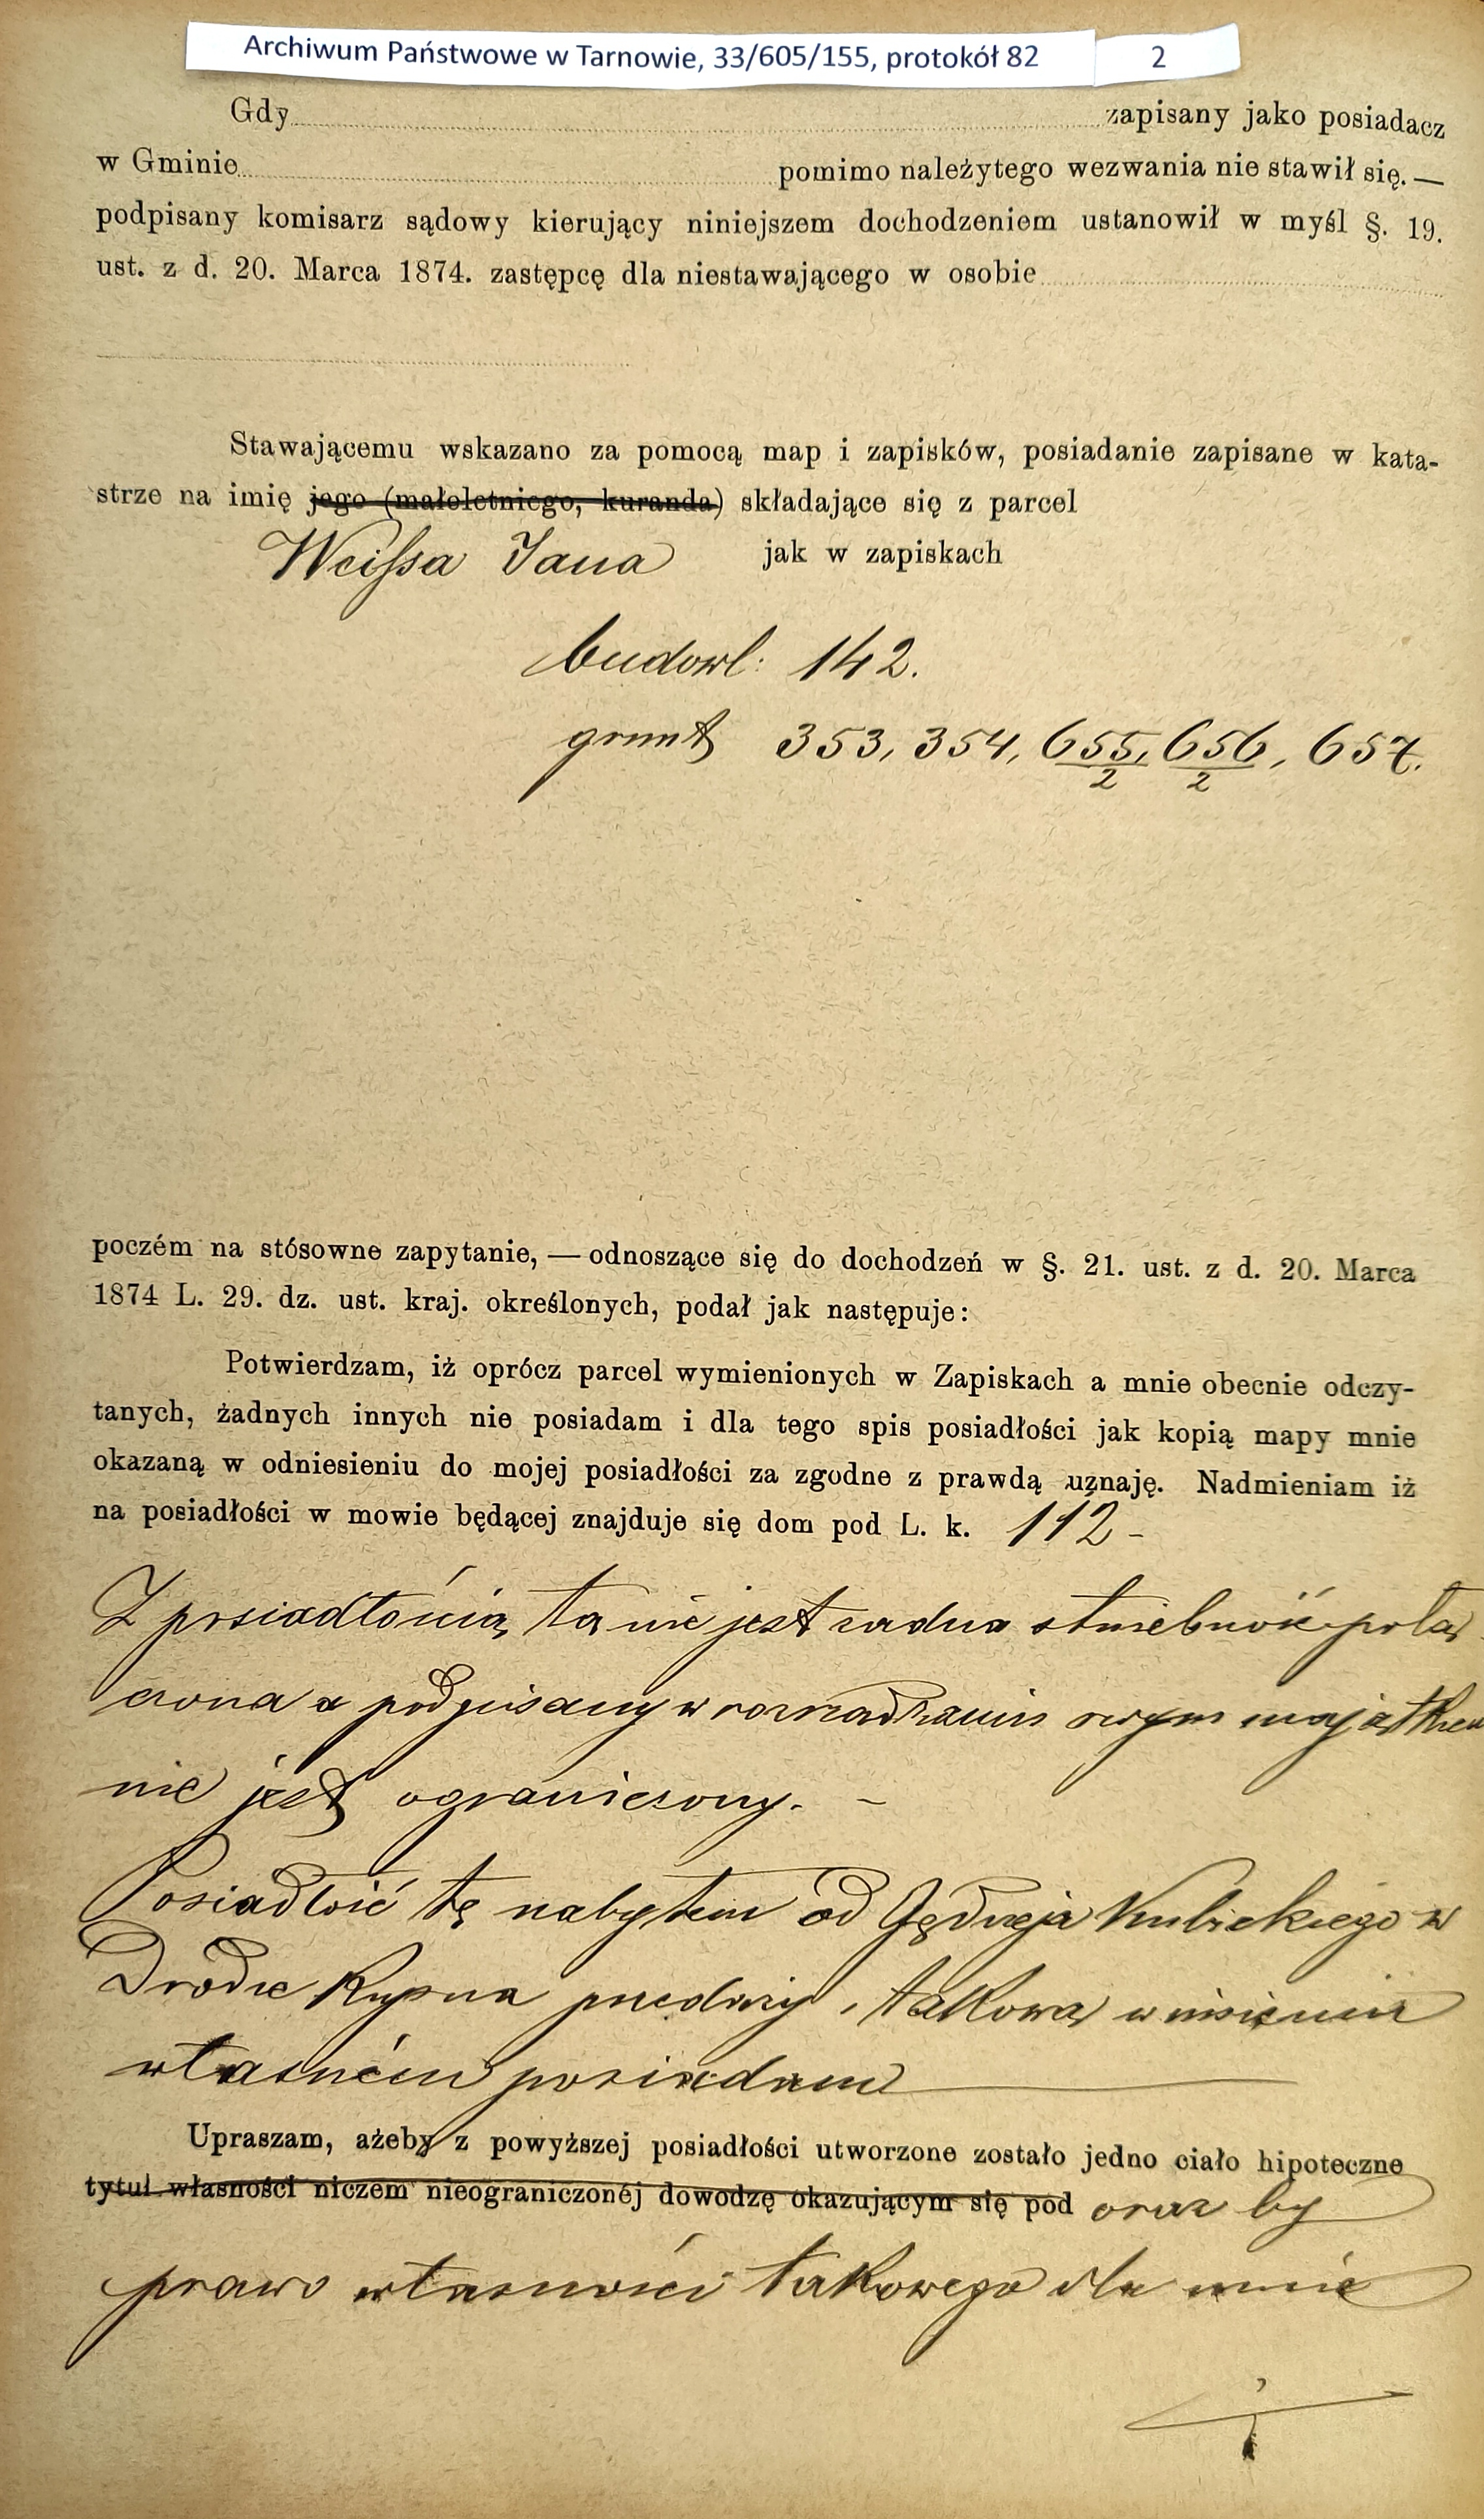 Archiwum Państwowe w Tarnowie, 33/605/155, protokół 82 2
Gdy zapisany jako posiadacz
w Gminie pomimo należytego wezwania nie stawił się. —
podpisany komisarz sądowy kierujący niniejszem dochodzeniem ustanowił w myśl §. 19.
ust. z d. 20. Marca 1874. zastępcę dla niestawającego w osobie
Stawającemu wskazano za pomocą map i zapisków, posiadanie zapisane w kata-
strze na imię jego (małoletniego, kuranda) składające się z parcel
Weissa Jana jak w zapiskach
budowl: 142.
grunt 353, 354, 655/2, 656/2, 657.
poczém na stósowne zapytanie, — odnoszące się do dochodzeń w §. 21. ust. z d. 20. Marca
1874 L. 29. dz. ust. kraj. określonych, podał jak następuje:
Potwierdzam, iż oprócz parcel wymienionych w Zapiskach a mnie obecnie odczy-
tanych, żadnych innych nie posiadam i dla tego spis posiadłości jak kopią mapy mnie
okazaną w odniesieniu do mojej posiadłości za zgodne z prawdą uznaję. Nadmieniam iż
na posiadłości w mowie będącej znajduje się dom pod L. k. 112 -
Z posiadłością tą nie jest żadna służebność połą
czona a podpisany w rozrządzaniu swym majątkiem
nie jest ograniczony. -
Posiadłość tę nabyłem od Jędrzeja Kubickiego w
Drodze kupna przedaży, takową w imieniu
własném posiadam
Upraszam, ażeby z powyższej posiadłości utworzone zostało jedno ciało hipoteczne
tytuł własności niczem nieograniczonéj dowodzę okazującym się pod oraz by
prawo własności takowego dla mnie